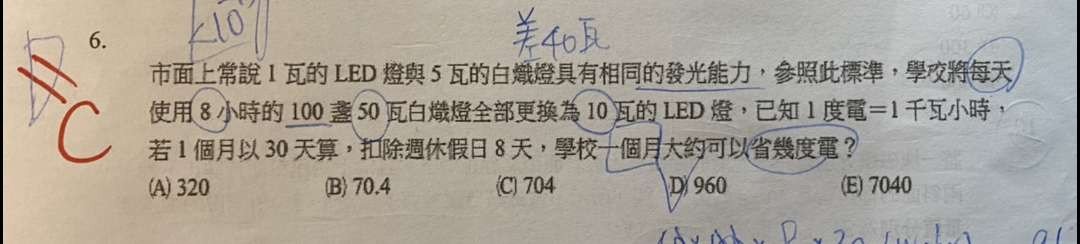 10
差40瓦
D C
6.
市面上常說 1 瓦的 LED 燈與 5 瓦的白熾燈具有相同的發光能力，參照此標準，學校將每天
使用 8 小時的 100 盞 50 瓦白熾燈全部更換為 10 瓦的 LED 燈，已知 1 度電＝1 千瓦小時，
若 1 個月以 30 天算，扣除週休假日 8 天，學校一個月大約可以省幾度電？
(A) 320 (B) 70.4 (C) 704 (D) 960 (E) 7040